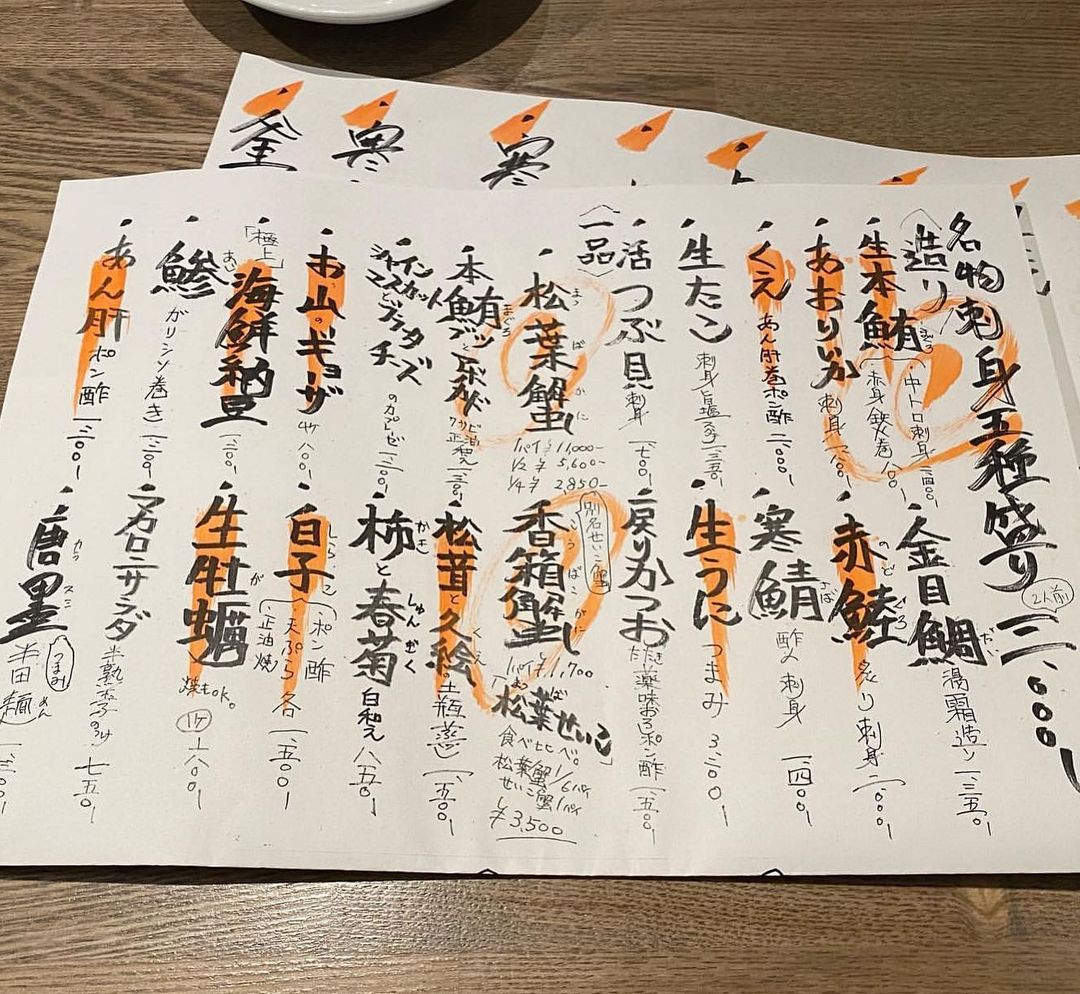 名物刺身五種盛り 2人前 三、〇〇〇
〈造り〉
・生本鮪 まぐろ
中トロ刺身 二、四〇〇
赤身鉄火巻
・金目鯛 だい 湯霜造り 一、三五〇
・あおりいか 刺身
・赤鯥 のどぐろ 炙り刺身
・くえ あん肝巻ポン酢 二、〇〇〇
・寒鯖 さば 酢〆 刺身 一、四〇〇
・生たこ 刺身
・生うに つまみ 三、二〇〇
・活つぶ貝 刺身 一、七〇〇
・戻りかつお たたき 薬味おろポン酢 一、五〇〇
〈一品〉
・松葉蟹 まつばがに
1パイ ¥11,000-
1/2 ¥5,600-
1/4 ¥2,850-
・香箱蟹 こうばこがに
別名せいこ蟹
1パイ ¥1,700
「松葉せいこ」
食べ比べ。
松葉蟹 1/6パイ
せいこ蟹 1パイ
¥3,500
・本鮪 まぐろ
・松茸と久絵 くえ の土瓶蒸し 一、五〇〇
・シャインマスカットとブラータチーズのカプレーゼ
・柿 かき と春菊 しゅんぎく 白和え 八五〇
・お山のギョーザ 4ケ 八〇〇
・白子 しらこ
ポン酢
天ぷら 各 一、五〇〇
・「極上」海鮮納豆 一、二〇〇
・生牡蠣 がき 焼もOK。 1ケ 六八〇
・鯵 あじ ガリシソ巻き 一、二〇〇
・マカロニサラダ 半熟 七五〇
・あん肝 ポン酢 一、三〇〇
・唐墨 カラスミ つまみ 半田麺 めん